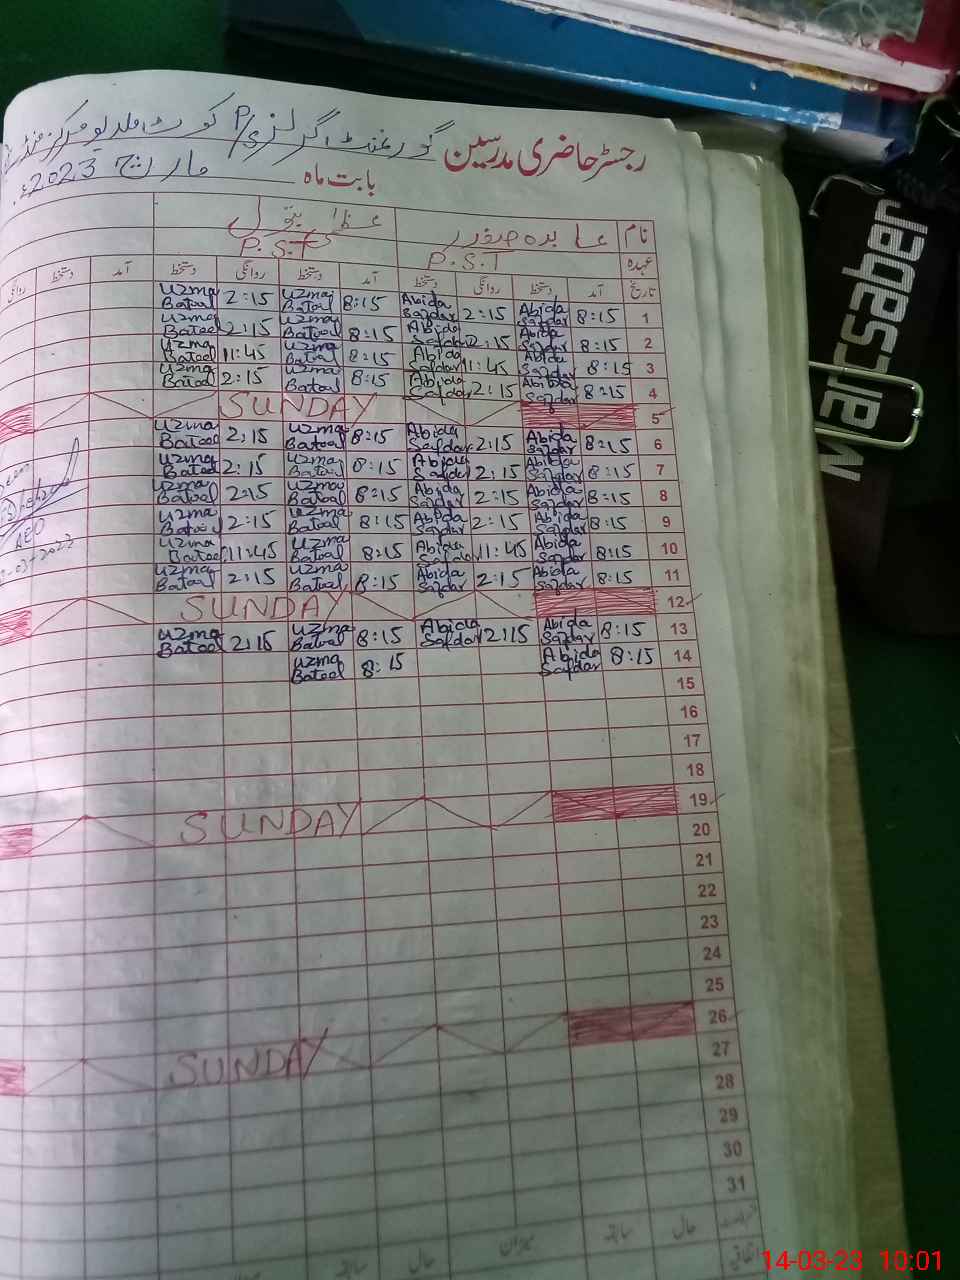 رجسٹر حاضری مدرسین گورنمنٹ گرلز P/S کوٹ
بابت ماہ مارچ 2023ء
نام عابدہ صفدر عظمیٰ بتول
عہدہ P.S.T P.S.T
تاریخ آمد دستخط روانگی دستخط آمد دستخط روانگی دستخط آمد دستخط روانگی
1 8:15 Abida Safdar 2:15 Abida Safdar 8:15 Uzma Batool 2:15 Uzma Batool
2 8:15 Abida Safdar 2:15 Abida Safdar 8:15 Uzma Batool 2:15 Uzma Batool
3 8:15 Abida Safdar 11:45 Abida Safdar 8:15 Uzma Batool 11:45 Uzma Batool
4 8:15 Abida Safdar 2:15 Abida Safdar 8:15 Uzma Batool 2:15 Uzma Batool
5 SUNDAY
6 8:15 Abida Safdar 2:15 Abida Safdar 8:15 Uzma Batool 2:15 Uzma Batool
7 8:15 Abida Safdar 2:15 Abida Safdar 8:15 Uzma Batool 2:15 Uzma Batool
8 8:15 Abida Safdar 2:15 Abida Safdar 8:15 Uzma Batool 2:15 Uzma Batool
9 8:15 Abida Safdar 2:15 Abida Safdar 8:15 Uzma Batool 2:15 Uzma Batool
10 8:15 Abida Safdar 11:45 Abida Safdar 8:15 Uzma Batool 11:45 Uzma Batool
11 8:15 Abida Safdar 2:15 Abida Safdar 8:15 Uzma Batool 2:15 Uzma Batool
12 SUNDAY
13 8:15 Abida Safdar 2:15 Abida Safdar 8:15 Uzma Batool 2:15 Uzma Batool
14 8:15 Abida Safdar 8:15 Uzma Batool
15
16
17
18
19 SUNDAY
20
21
22
23
24
25
26 SUNDAY
27
28
29
30
31
حال سابقہ میزان حال سابقہ
اتفاقیہ
AEO
03-2023
Marcsaber
14-03-23 10:01